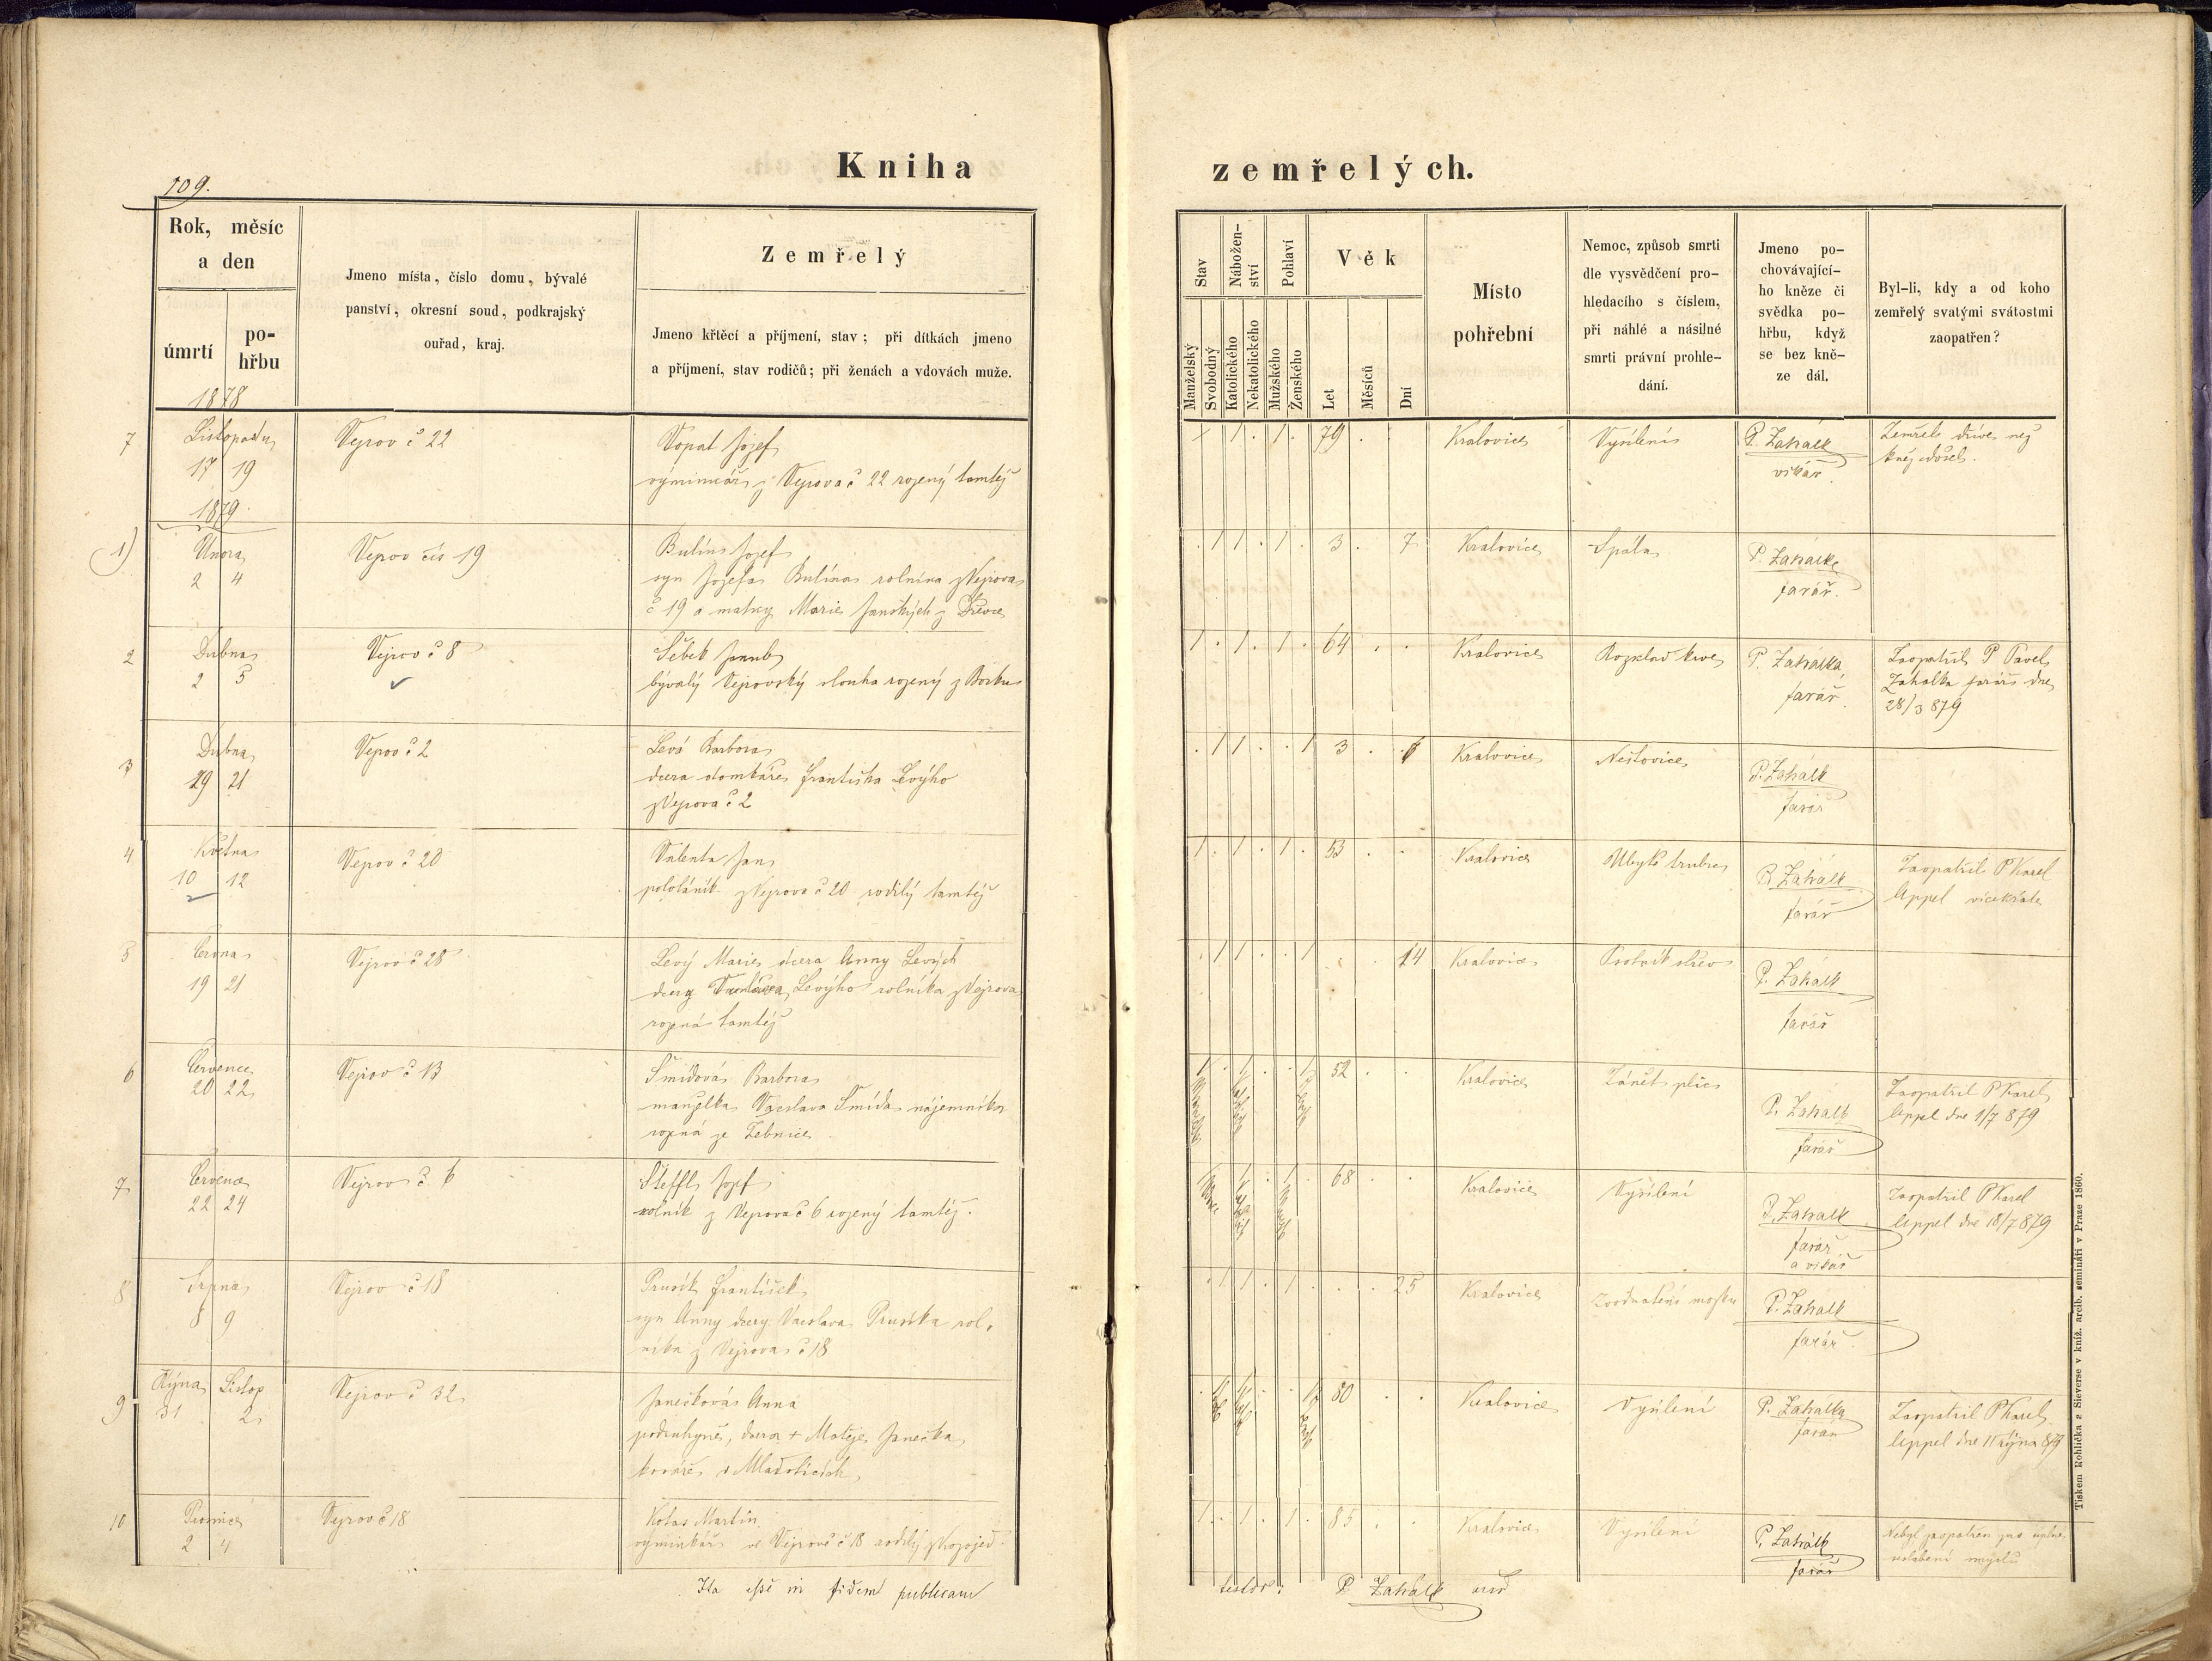 109.
Kniha zemřelých.
Rok, měsíc
a den
úmrtí
po-
hřbu
Jmeno místa, číslo domu, bývalé
panství, okresní soud, podkrajský
ouřad, kraj.
Zemřelý
Jmeno křtěcí a příjmení, stav; při dítkách jmeno
a příjmení, stav rodičů; při ženách a vdovách muže.
Stav
Manželský
Svobodný
Nábožen-
ství
Katolického
Nekatolického
Pohlaví
Mužského
Ženského
Věk
Let
Měsíců
Dní
Místo
pohřební
Nemoc, způsob smrti
dle vysvědčení pro-
hledacího s číslem,
při náhlé a násilné
smrti právní prohle-
dání.
Jmeno po-
chovávající-
ho kněze či
svědka po-
hřbu, když
se bez kně-
ze dál.
Byl-li, kdy a od koho
zemřelý svatými svátostmi
zaopatřen?
1878
7 Listopadu
17 19
Vejrov č 22
Vopat Josef
výminkář z Vejrova č 22 rozený tamtéž
1 . 1 . 79 .
Kralovice
Vysílení
P. Zahálk
vikář.
Zemřel dříve než
kněz došel.
1879
1) Února
2 4
Vejrov čís 19
Bulín Josef
syn Josefa Bulína rolníka z Vejrova
č 19 a matky Marie
. 1 1 . 1 . 3 . 7
Kralovice
Spála
P. Zahálka
farář.
2 Dubna
2 5
Vejrov č 8
Šebek Jakub
bývalý Vejrovský sluha rozený z Borku
1 . 1 . 1 . 64 . .
Kralovice
Rozklad krve
P. Zahálka
farář.
Zaopatřil P Pavel
Zahálka farář dne
28/3 879
3 Dubna
19 21
Vejrov č 2
Levá Barbora
dcera domkáře Františka Levýho
z Vejrova č 2
. 1 1 . . 1 3 .
Kralovice
Neštovice
P. Zahálk
farář
4 Května
10 12
Vejrov č 20
Valenta Jan
pololáník z Vejrova č 20 rodilý tamtéž
1 . 1 . 1 . 53 . .
Kralovice
P. Zahálk
farář
Zaopatřil P Karel
Appel vícekráte
5 Června
19 21
Vejrov č 28
Levý Marie dcera Anny Levých
dcery Václava Levýho rolníka z Vejrova
rozená tamtéž
. 1 1 . . 1 . . 14
Kralovice
Psotník střev
P. Zahálk
farář
6 Července
20 22
Vejrov č 13
Šmídová Barbora
manželka Václava Šmída nájemníka
rozená ze Žebnice
1 . 1 . . 1 52 . .
Kralovice
Zánět plic
P. Zahálk
farář
Zaopatřil P Karel
Appel dne 1/7 879
7 Července
22 24
Vejrov č. 6
Šteffl Josef
rolník z Vejrova č 6 rozený tamtéž.
1 . 1 . 68 . .
Kralovice
Vysílení
P. Zahálk
farář
a vikář
Zaopatřil P Karel
Appel dne 18/7 879
8 Srpna
8 9
Vejrov č 18
Prusík František
syn Anny dcery Václava Prusíka rol-
níka z Vejrova č 18
. 1 1 . 1 . . . 25
Kralovice
Zvodnatění mozku
P. Zahálk
farář
9 Října Listop
31 2
Vejrov č 32
Janečková Anna
podruhyně, dcera + Matěje Janečka
kováře v Mladoticích
80 . .
Kralovice
Vysílení
P. Zahálka
farář
Zaopatřil P Karel
Appel dne 11 října 879
10 Prosince
2 4
Vejrov č 18
Kolas Martin
výminkář ve Vejrově č 18 rodilý z Kozojed
1 . 1 . 1 . 85 . .
Kralovice
Vysílení
P. Zahálk
farář
Nebyl zaopatřen pro úplné
oslabení smyslů
Ita esse in fidem publicam
testor: P. Zahálk
Tiskem Rohlíčka z Sieverse v kníž. arcib. semináři v Praze 1860.